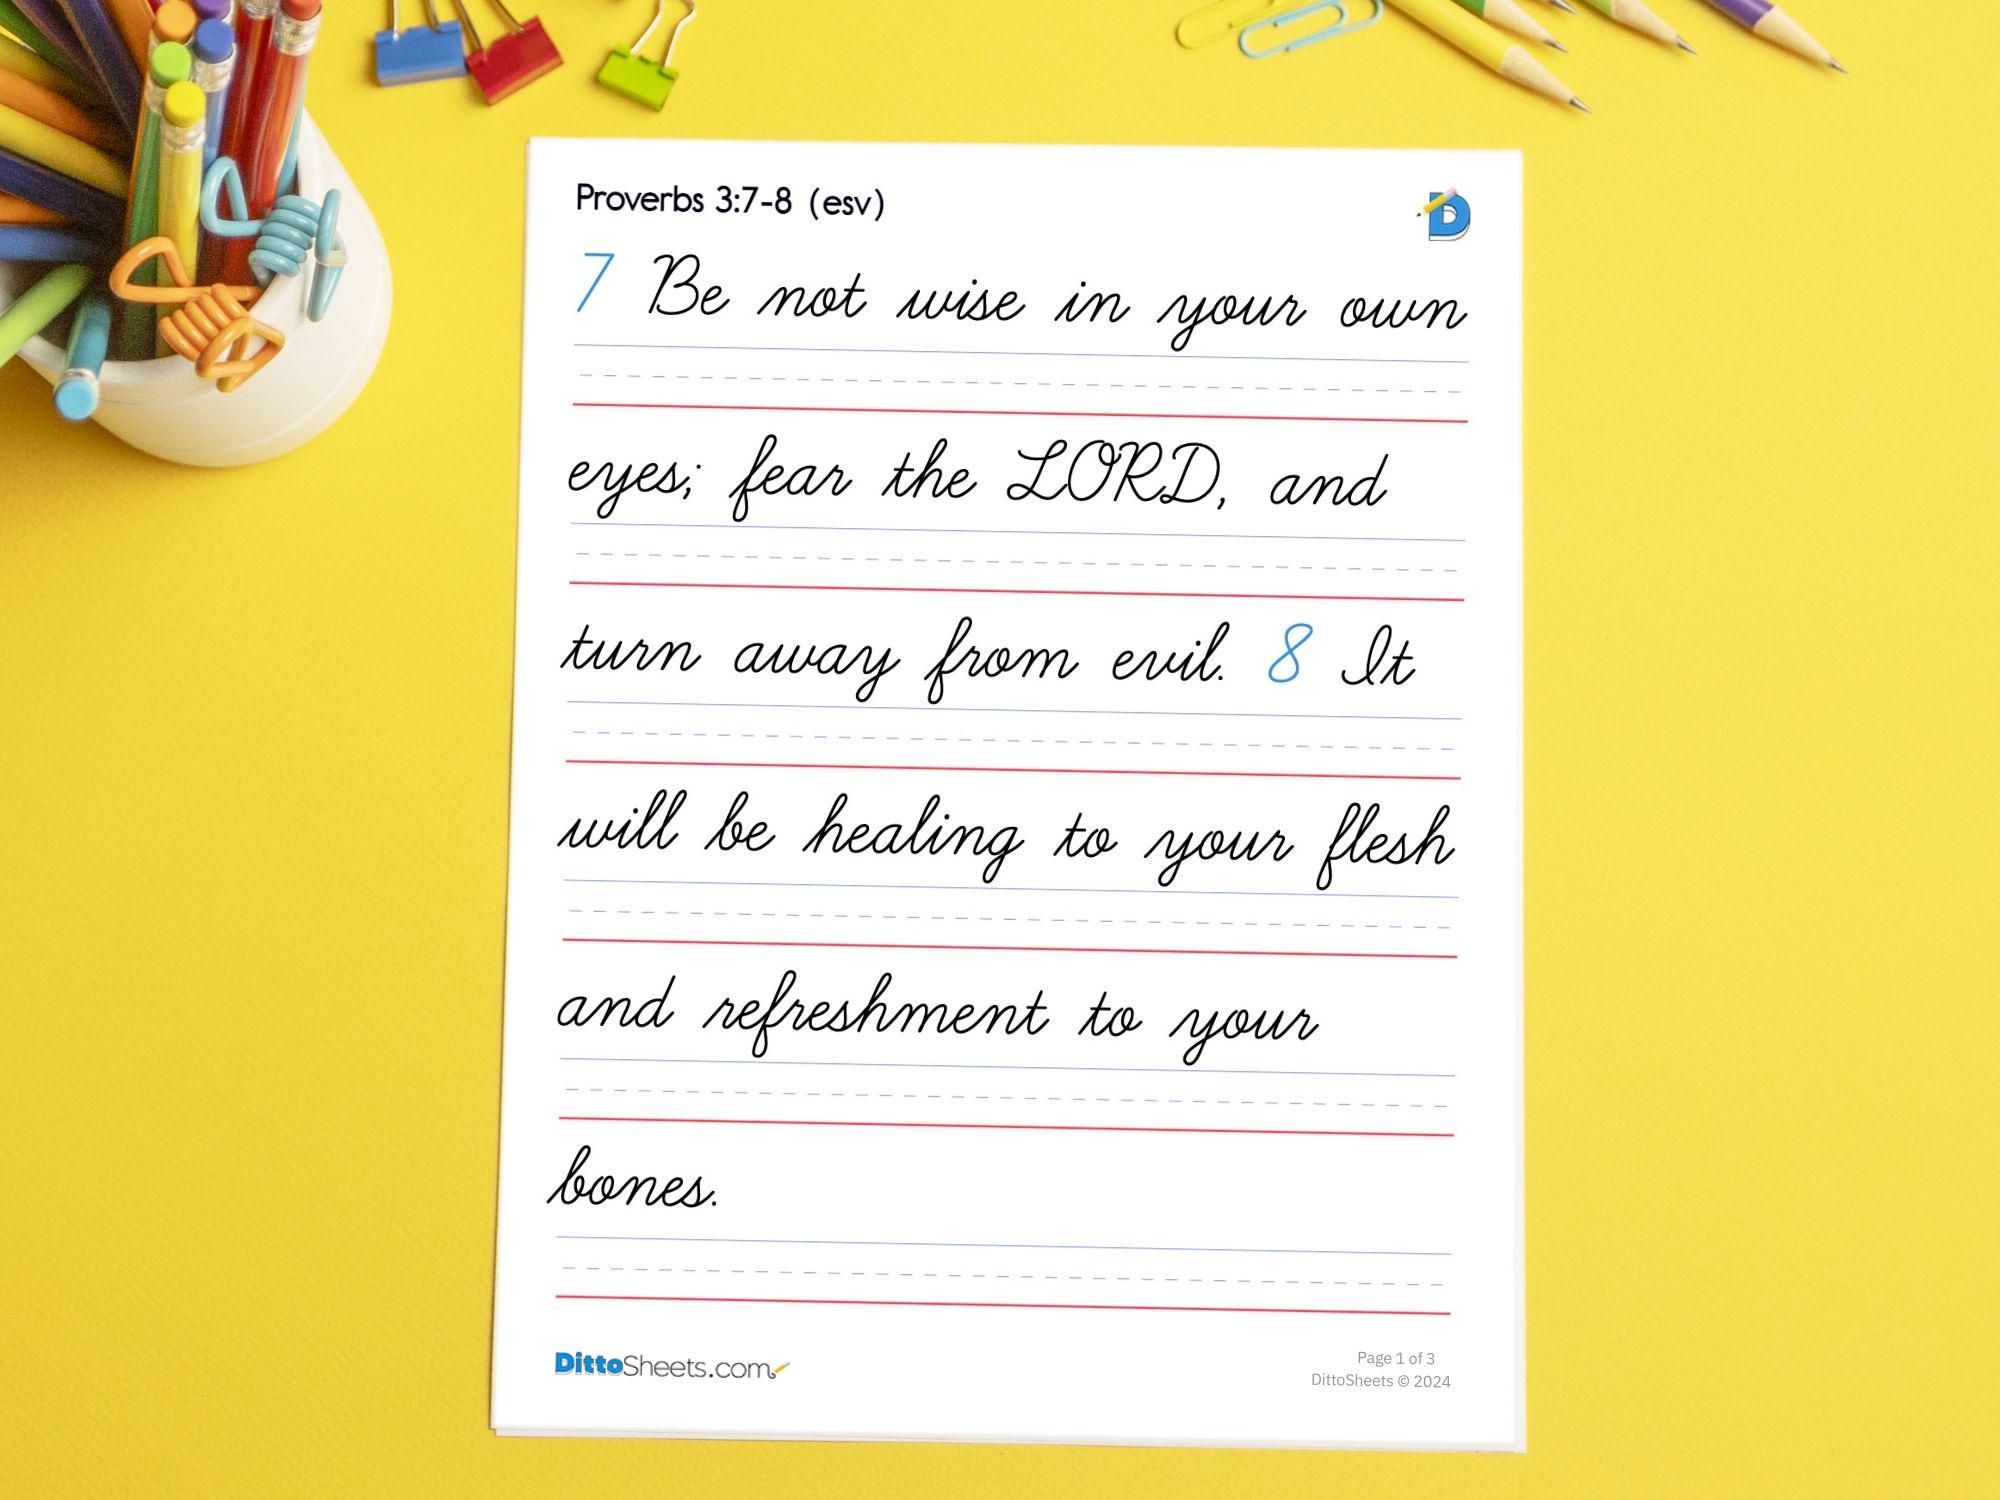 Proverbs 3:7-8 (esv)
7 Be not wise in your own
eyes; fear the LORD, and
turn away from evil. 8 It
will be healing to your flesh
and refreshment to your
bones.
DittoSheets.com
Page 1 of 3
DittoSheets © 2024